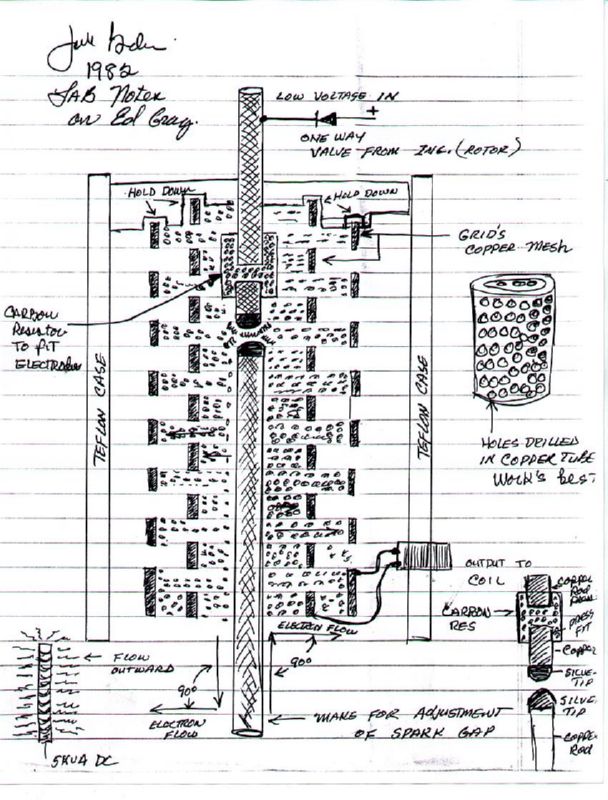 1982
LAB Notes
on Ed Gray.
LOW VOLTAGE IN
+
ONE WAY
VALVE FROM ING. (ROTOR)
HOLD DOWN
HOLD DOWN
GRID'S
COPPER MESH
CARBON
Resistor
TO FIT
ELECTRODE
TEFLON CASE
TEFLON CASE
HOLES DRILLED
IN COPPER TUBE
WORK'S BEST
OUTPUT TO
COIL
ELECTRON FLOW
90°
FLOW
OUTWARD
90°
ELECTRON
FLOW
5KVA DC
MAKE FOR ADJUSTMENT
OF SPARK GAP
COPPER
ROD
CARBON
RES
PRESS
FIT
COPPER
SILVE-
TIP
SILVE-
TIP
COPPER
ROD